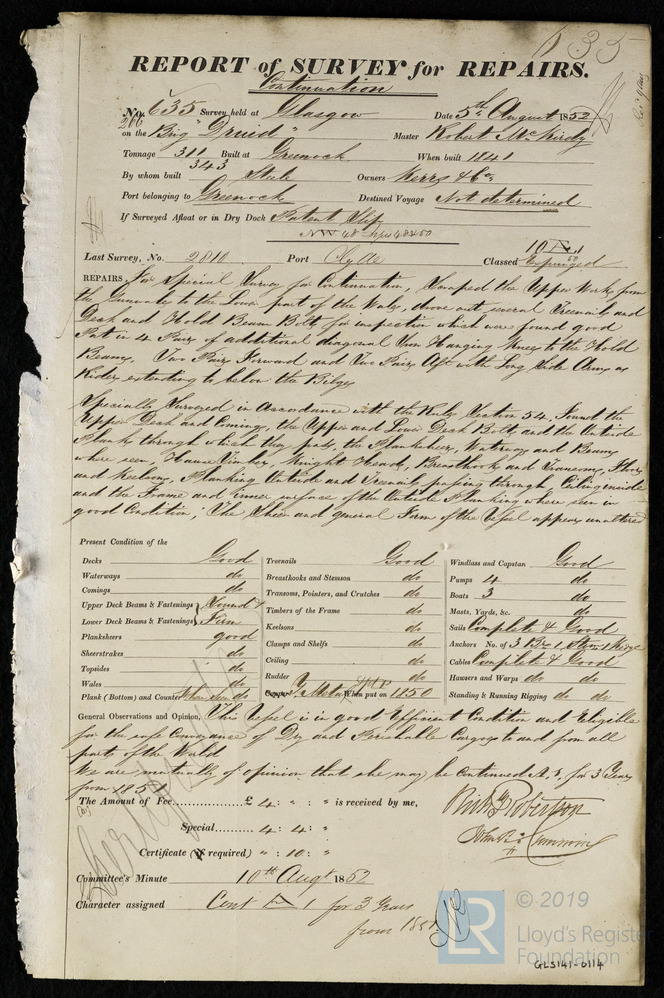 635
REPORT of SURVEY for REPAIRS.
Continuation
No. 635 Survey held at Glasgow Date 5th August 1852
on the Brig "Druid" Master Robert McKirdy
Tonnage 311 Built at Greenock When built 1841
343
By whom built Steele Owners Kerrs & Co.
Port belonging to Greenock Destined Voyage Not determined
If Surveyed Afloat or in Dry Dock Patent Slip
Last Survey, No. 2810 Port Clyde Classed 10 A 1
Expunged
REPAIRS For Special Survey for Continuation, Scraped the Upper Works from
the Gunwales to the Lower part of the Wales, drove out several Treenails and
Deck and Hold Beam Bolts for inspection which were found good
Put in 4 Pairs of additional diagonal Iron Hanging Knees to the Hold
Beams, Two Pairs Forward and Two Pairs Aft with Long Side Arms as
Riders extending to below the Bilges
Specially Surveyed in Accordance with the Rules Section 54, Found the
Upper Deck and Comings, the Upper and Lower Deck Bolts and the Outside
Planks through which they pass, the Planksheers, Waterways and Beams
where seen, Hawse Timbers, Knight Heads, Breasthooks and Transoms, Floors
and Keelsons, Planking Outside and Treenails passing through, Ceiling inside
and the Frame and inner surface of the Outside Planking where seen in
good Condition; The Sheer and general Form of the Vessel appears unaltered
Present Condition of the
Decks Good Treenails Good Windlass and Capstan Good
Waterways do Breasthooks and Stemson do Pumps 4 do
Comings do Transoms, Pointers, and Crutches do Boats 3 do
Upper Deck Beams & Fastenings Sound & Timbers of the Frame do Masts, Yards, &c. do
Lower Deck Beams & Fastenings Firm Keelsons do Sails Complete & Good
Planksheers good Clamps and Shelfs do Anchors No. of 3 Br 1 Stm 1 Kedge
Sheerstrakes do Ceiling do Cables Complete & Good
Topsides do Rudder do Hawsers and Warps do do
Wales do Copper Y. Metal When put on 1850 Standing & Running Rigging do do
Plank (Bottom) and Counter When seen do
General Observations and Opinion, This Vessel is in good Efficient Condition and Eligible
for the safe Conveyance of Dry and Perishable Cargoes to and from all
parts of the World
We are mutually of opinion that she may be Continued A. 1. for 3 Years
from 1851
The Amount of Fee £ 4 : " : " is received by me,
Special 4 : 4 : "
Certificate (if required) " : 10 : "
Committee's Minute 10th Augt 1852
Character assigned Cont A 1 for 3 Years
from 1851
© 2019
LR Lloyd's Register
Foundation
GLS141-0114